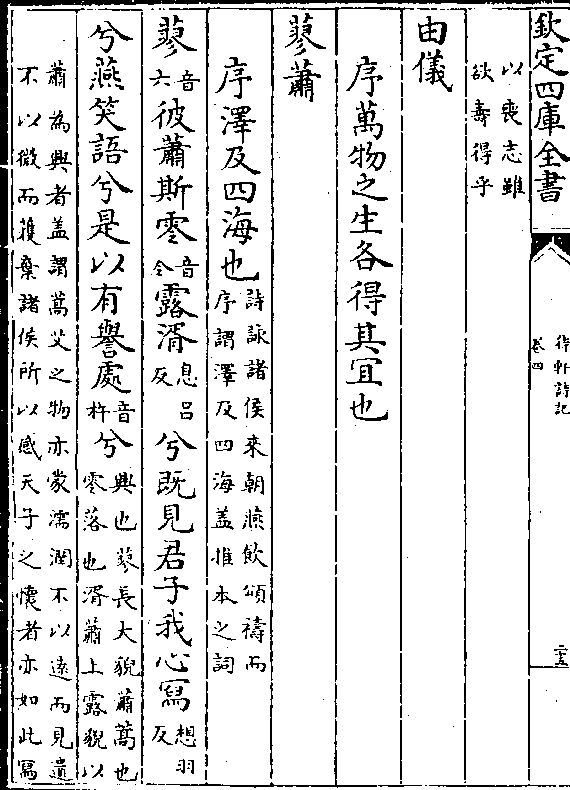 欽定四庫全書
待軒詩記
卷四
二五
以喪志雖
欲壽得乎
由儀
序萬物之生各得其宜也
蓼蕭
序澤及四海也詩詠諸侯來朝燕飲頌禱而
序謂澤及四海盖推本之詞
蓼音六彼蕭斯零音令露湑息呂反兮既見君子我心寫想羽反
兮燕笑語兮是以有譽處音杵兮興也蓼長大貌蕭蒿也
零落也湑蕭上露貌以
蕭為興者盖謂蒿艾之物亦蒙濡潤不以遠而見遺
不以微而獲棄諸侯所以感天子之懷者亦如此寫